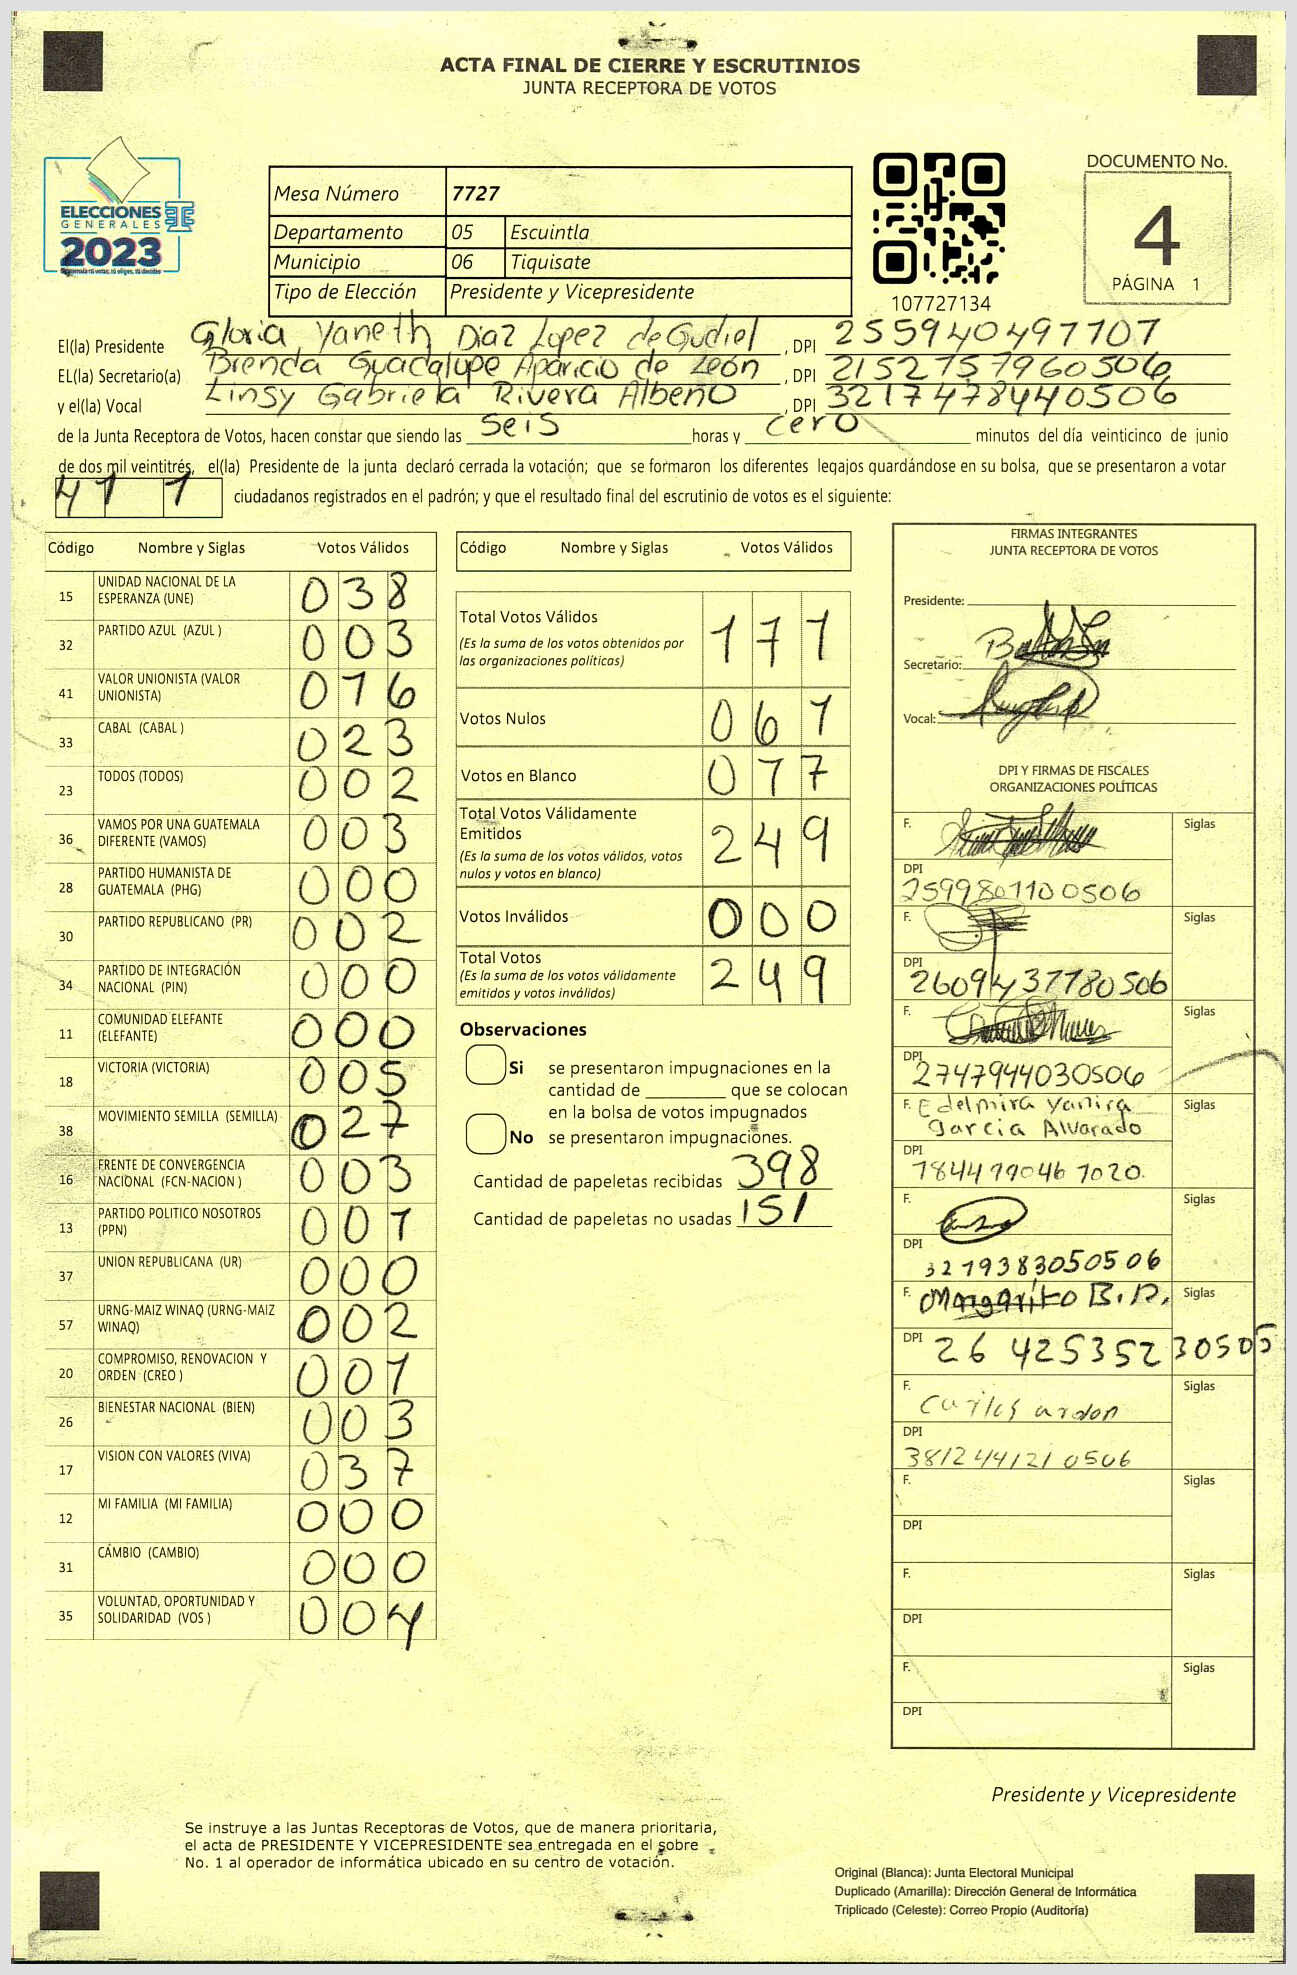 ACTA FINAL DE CIERRE Y ESCRUTINIOS
JUNTA RECEPTORA DE VOTOS
ELECCIONES
GENERALES
2023
Guatemala tú votas, tú eliges, tú decides
Mesa Número 7727
Departamento 05 Escuintla
Municipio 06 Tiquisate
Tipo de Elección Presidente y Vicepresidente
107727134
DOCUMENTO No.
4
PÁGINA 1
El(la) Presidente Gloria Yaneth Diaz Lopez de Gudiel , DPI 2559404977107
EL(la) Secretario(a) Brenda Guadalupe Aparicio de León , DPI 2152757960506
y el(la) Vocal Linsy Gabriela Rivera Albeño , DPI 3217478440506
de la Junta Receptora de Votos, hacen constar que siendo las seis horas y cero minutos del día veinticinco de junio
de dos mil veintitrés, el(la) Presidente de la junta declaró cerrada la votación; que se formaron los diferentes legajos guardándose en su bolsa, que se presentaron a votar
411 ciudadanos registrados en el padrón; y que el resultado final del escrutinio de votos es el siguiente:
Código Nombre y Siglas Votos Válidos
15 UNIDAD NACIONAL DE LA ESPERANZA (UNE) 038
32 PARTIDO AZUL (AZUL ) 003
41 VALOR UNIONISTA (VALOR UNIONISTA) 016
33 CABAL (CABAL ) 023
23 TODOS (TODOS) 002
36 VAMOS POR UNA GUATEMALA DIFERENTE (VAMOS) 003
28 PARTIDO HUMANISTA DE GUATEMALA (PHG) 000
30 PARTIDO REPUBLICANO (PR) 002
34 PARTIDO DE INTEGRACIÓN NACIONAL (PIN) 000
11 COMUNIDAD ELEFANTE (ELEFANTE) 000
18 VICTORIA (VICTORIA) 005
38 MOVIMIENTO SEMILLA (SEMILLA) 027
16 FRENTE DE CONVERGENCIA NACIONAL (FCN-NACION ) 003
13 PARTIDO POLITICO NOSOTROS (PPN) 001
37 UNION REPUBLICANA (UR) 000
57 URNG-MAIZ WINAQ (URNG-MAIZ WINAQ) 002
20 COMPROMISO, RENOVACION Y ORDEN (CREO ) 001
26 BIENESTAR NACIONAL (BIEN) 003
17 VISION CON VALORES (VIVA) 037
12 MI FAMILIA (MI FAMILIA) 000
31 CAMBIO (CAMBIO) 000
35 VOLUNTAD, OPORTUNIDAD Y SOLIDARIDAD (VOS ) 004
Código Nombre y Siglas Votos Válidos
Total Votos Válidos 171
(Es la suma de los votos obtenidos por
las organizaciones políticas)
Votos Nulos 061
Votos en Blanco 017
Total Votos Válidamente
Emitidos 249
(Es la suma de los votos válidos, votos
nulos y votos en blanco)
Votos Inválidos 000
Total Votos 249
(Es la suma de los votos válidamente
emitidos y votos inválidos)
Observaciones
Si se presentaron impugnaciones en la
cantidad de ________ que se colocan
en la bolsa de votos impugnados
No se presentaron impugnaciones.
Cantidad de papeletas recibidas 398
Cantidad de papeletas no usadas 151
FIRMAS INTEGRANTES
JUNTA RECEPTORA DE VOTOS
Presidente:
Secretario:
Vocal:
DPI Y FIRMAS DE FISCALES
ORGANIZACIONES POLÍTICAS
F. Siglas
DPI
2599801100506
F. Siglas
DPI
2609437780506
F. Siglas
DPI
2747944030506
F. Edelmira Yanira Siglas
Garcia Alvarado
DPI
1844990461020.
F. Siglas
DPI
3219383050506
F. Margarito B. D. Siglas
DPI 2642535230505
F. Siglas
Carlos ardon
DPI
3812441210506
F. Siglas
DPI
F. Siglas
DPI
F. Siglas
DPI
Presidente y Vicepresidente
Se instruye a las Juntas Receptoras de Votos, que de manera prioritaria,
el acta de PRESIDENTE Y VICEPRESIDENTE sea entregada en el sobre
No. 1 al operador de informática ubicado en su centro de votación.
Original (Blanca): Junta Electoral Municipal
Duplicado (Amarilla): Dirección General de Informática
Triplicado (Celeste): Correo Propio (Auditoría)